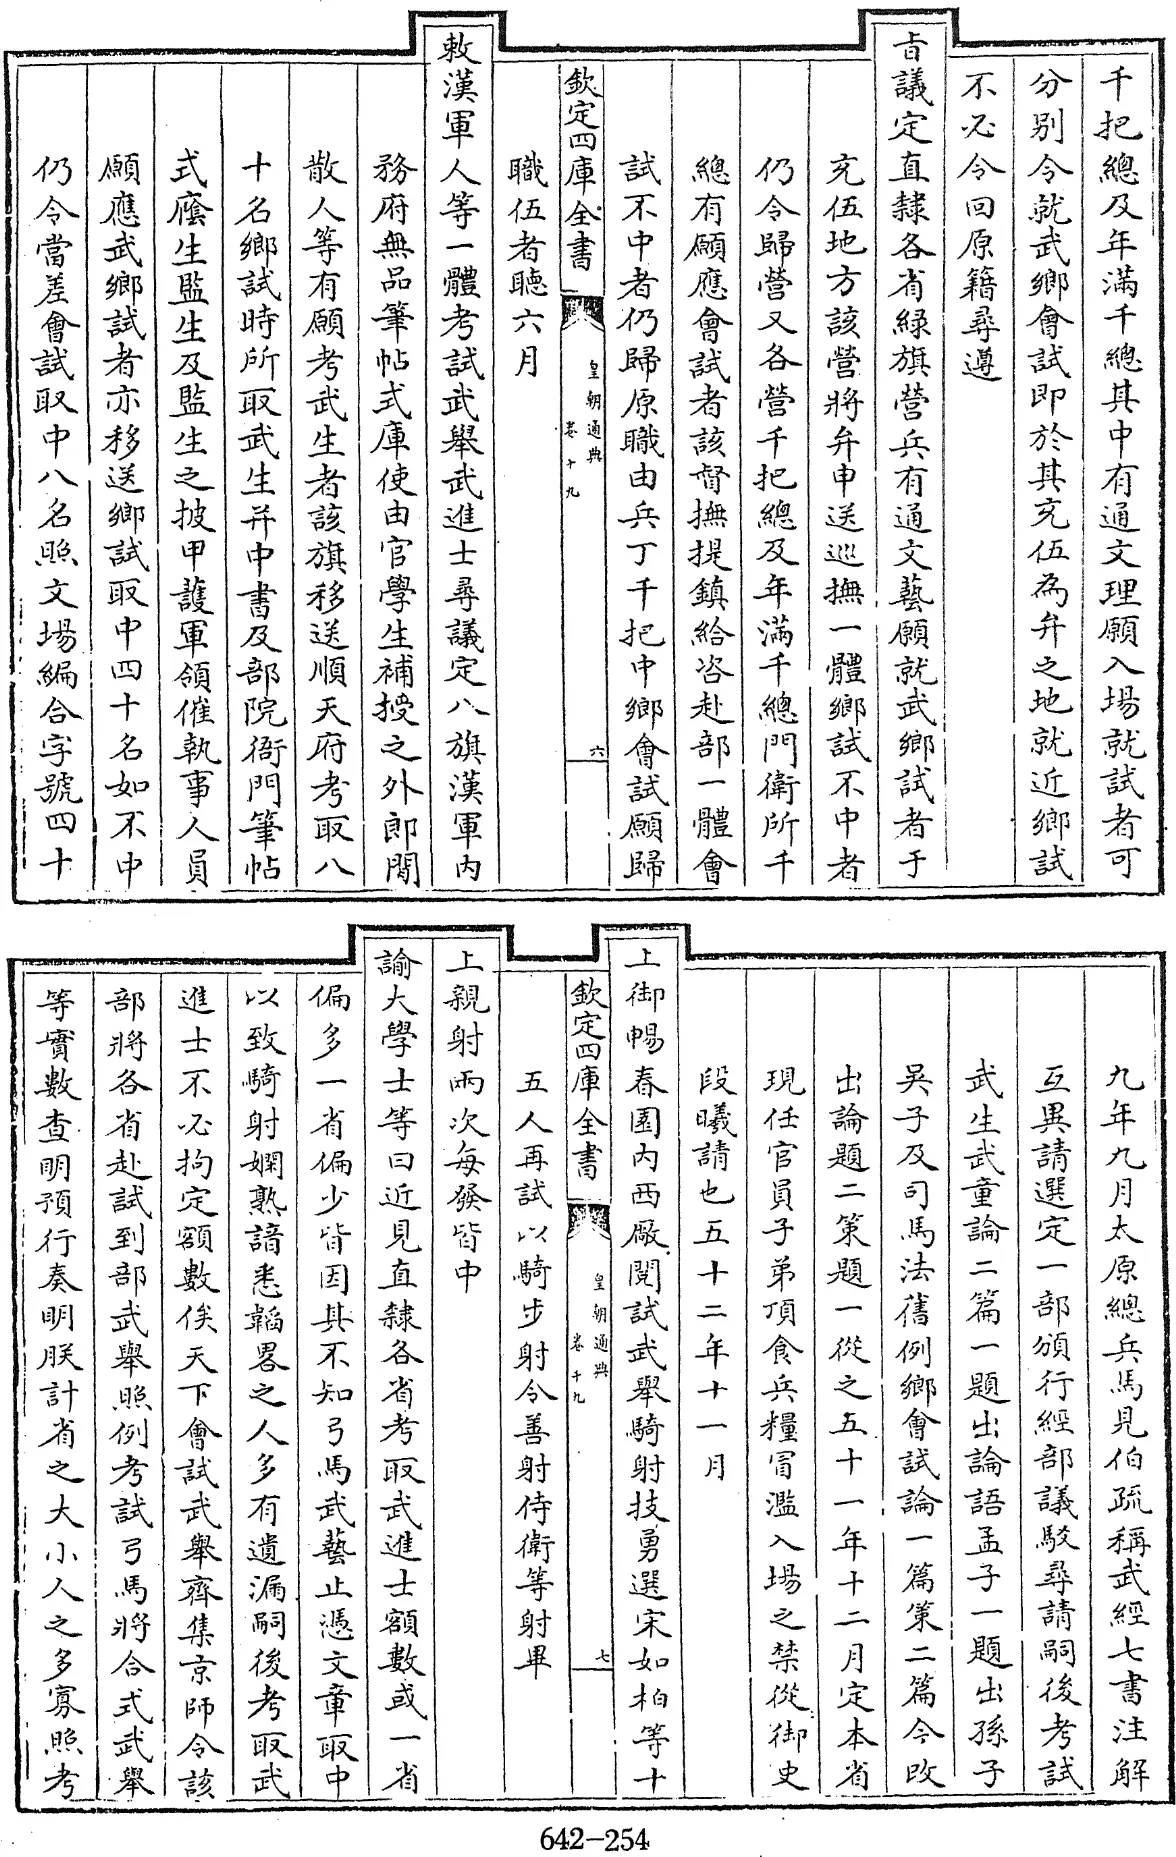 千把總及年滿千總其中有通文理願入場就試者可
分别令就武鄉會試即於其充伍為弁之地就近鄉試
不必令回原籍尋遵
旨議定直隸各省綠旗營兵有通文藝願就武鄉試者于
充伍地方該營將弁申送巡撫一體鄉試不中者
仍令歸營又各營千把總及年滿千總門衛所千
總有願應會試者該督撫提鎮給咨赴部一體會
試不中者仍歸原職由兵丁千把中鄉會試願歸
欽定四庫全書
皇朝通典
卷十九
六
職伍者聽六月
敕漢軍人等一體考試武舉武進士尋議定八旗漢軍内
務府無品筆帖式庫使由官學生補授之外郎閒
散人等有願考武生者該旗移送順天府考取八
十名鄉試時所取武生并中書及部院衙門筆帖
式廕生監生及監生之披甲護軍領催執事人員
願應武鄉試者亦移送鄉試取中四十名如不中
仍令當差會試取中八名照文場編合字號四十
九年九月太原總兵馬見伯疏稱武經七書注解
互異請選定一部頒行經部議駮尋請嗣後考試
武生武童論二篇一題出論語孟子一題出孫子
吳子及司馬法舊例鄉會試論一篇策二篇今改
出論題二策題一從之五十一年十二月定本省
現任官員子弟頂食兵糧冒濫入場之禁從御史
段曦請也五十二年十一月
上御暢春園内西厰閱試武舉騎射技勇選宋如柏等十
欽定四庫全書
皇朝通典
卷十九
七
五人再試以騎步射令善射侍衛等射畢
上親射兩次每發皆中
諭大學士等曰近見直隸各省考取武進士額數或一省
偏多一省偏少皆因其不知弓馬武藝止憑文章取中
以致騎射嫻熟諳悉韜畧之人多有遺漏嗣後考取武
進士不必拘定額數俟天下會試武舉齊集京師令該
部將各省赴試到部武舉照例考試弓馬將合式武舉
等實數查明預行奏明朕計省之大小人之多寡照考
642-254